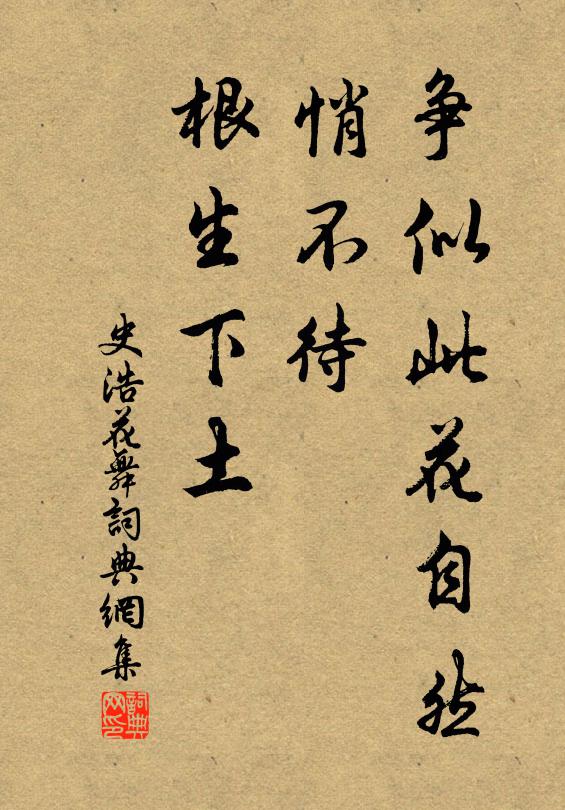 争似此花自然
悄不待
根生下土
史浩花舞詞典網集
詞典网印